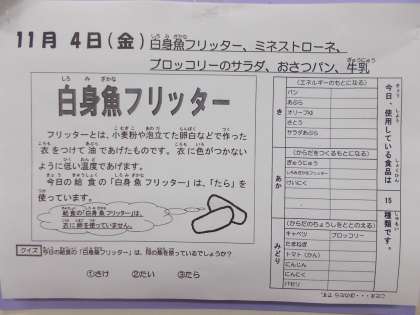 11月 4日(金) 白身魚フリッター、ミネストローネ、
ブロッコリーのサラダ、おさつパン、牛乳
白身魚フリッター
フリッターとは、小麦粉や泡立てた卵白などで作った
衣をつけて油であげたものです。衣に色がつかない
ように低い温度であげます。
今日の給食の「白身魚フリッター」は、「たら」を
使っています。
給食の「白身魚フリッター」は、
衣に卵を使っていません。
クイズ 今日の給食の「白身魚フリッター」は、何の魚を使っているでしょうか?
①さけ ②たい ③たら
今日、使用している食品は
15
種類です。
き
(エネルギーのもとになる)
パン
あぶら
オリーブ油
さとう
サラダあぶら
あか
(からだをつくるもとになる)
ぎゅうにゅう
しろみざかなフリッター
けいにく
みどり
(からだのちょうしをととのえる)
キャベツ ブロッコリー
たまねぎ
トマト(かん)
にんじん
にんにく
パセリ